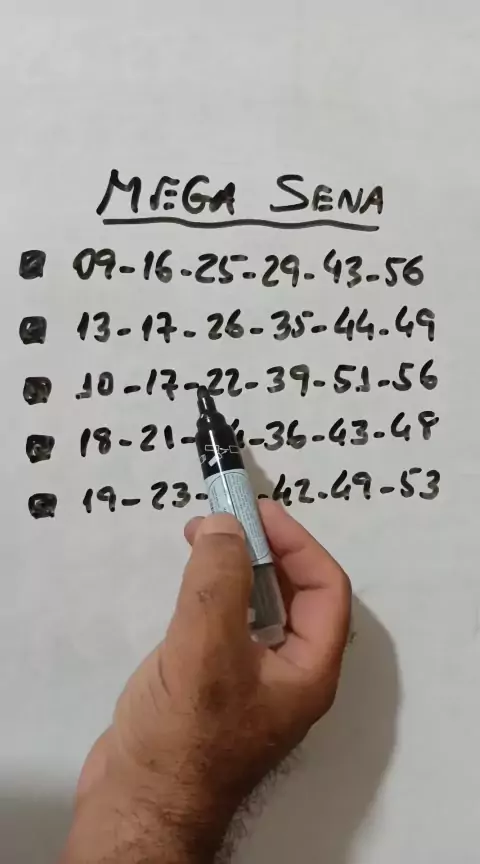 MEGA SENA
09-16-25-29-43-56
13-17-26-35-44-49
10-17-22-39-51-56
18-21- -36-43-48
19-23- -42-49-53